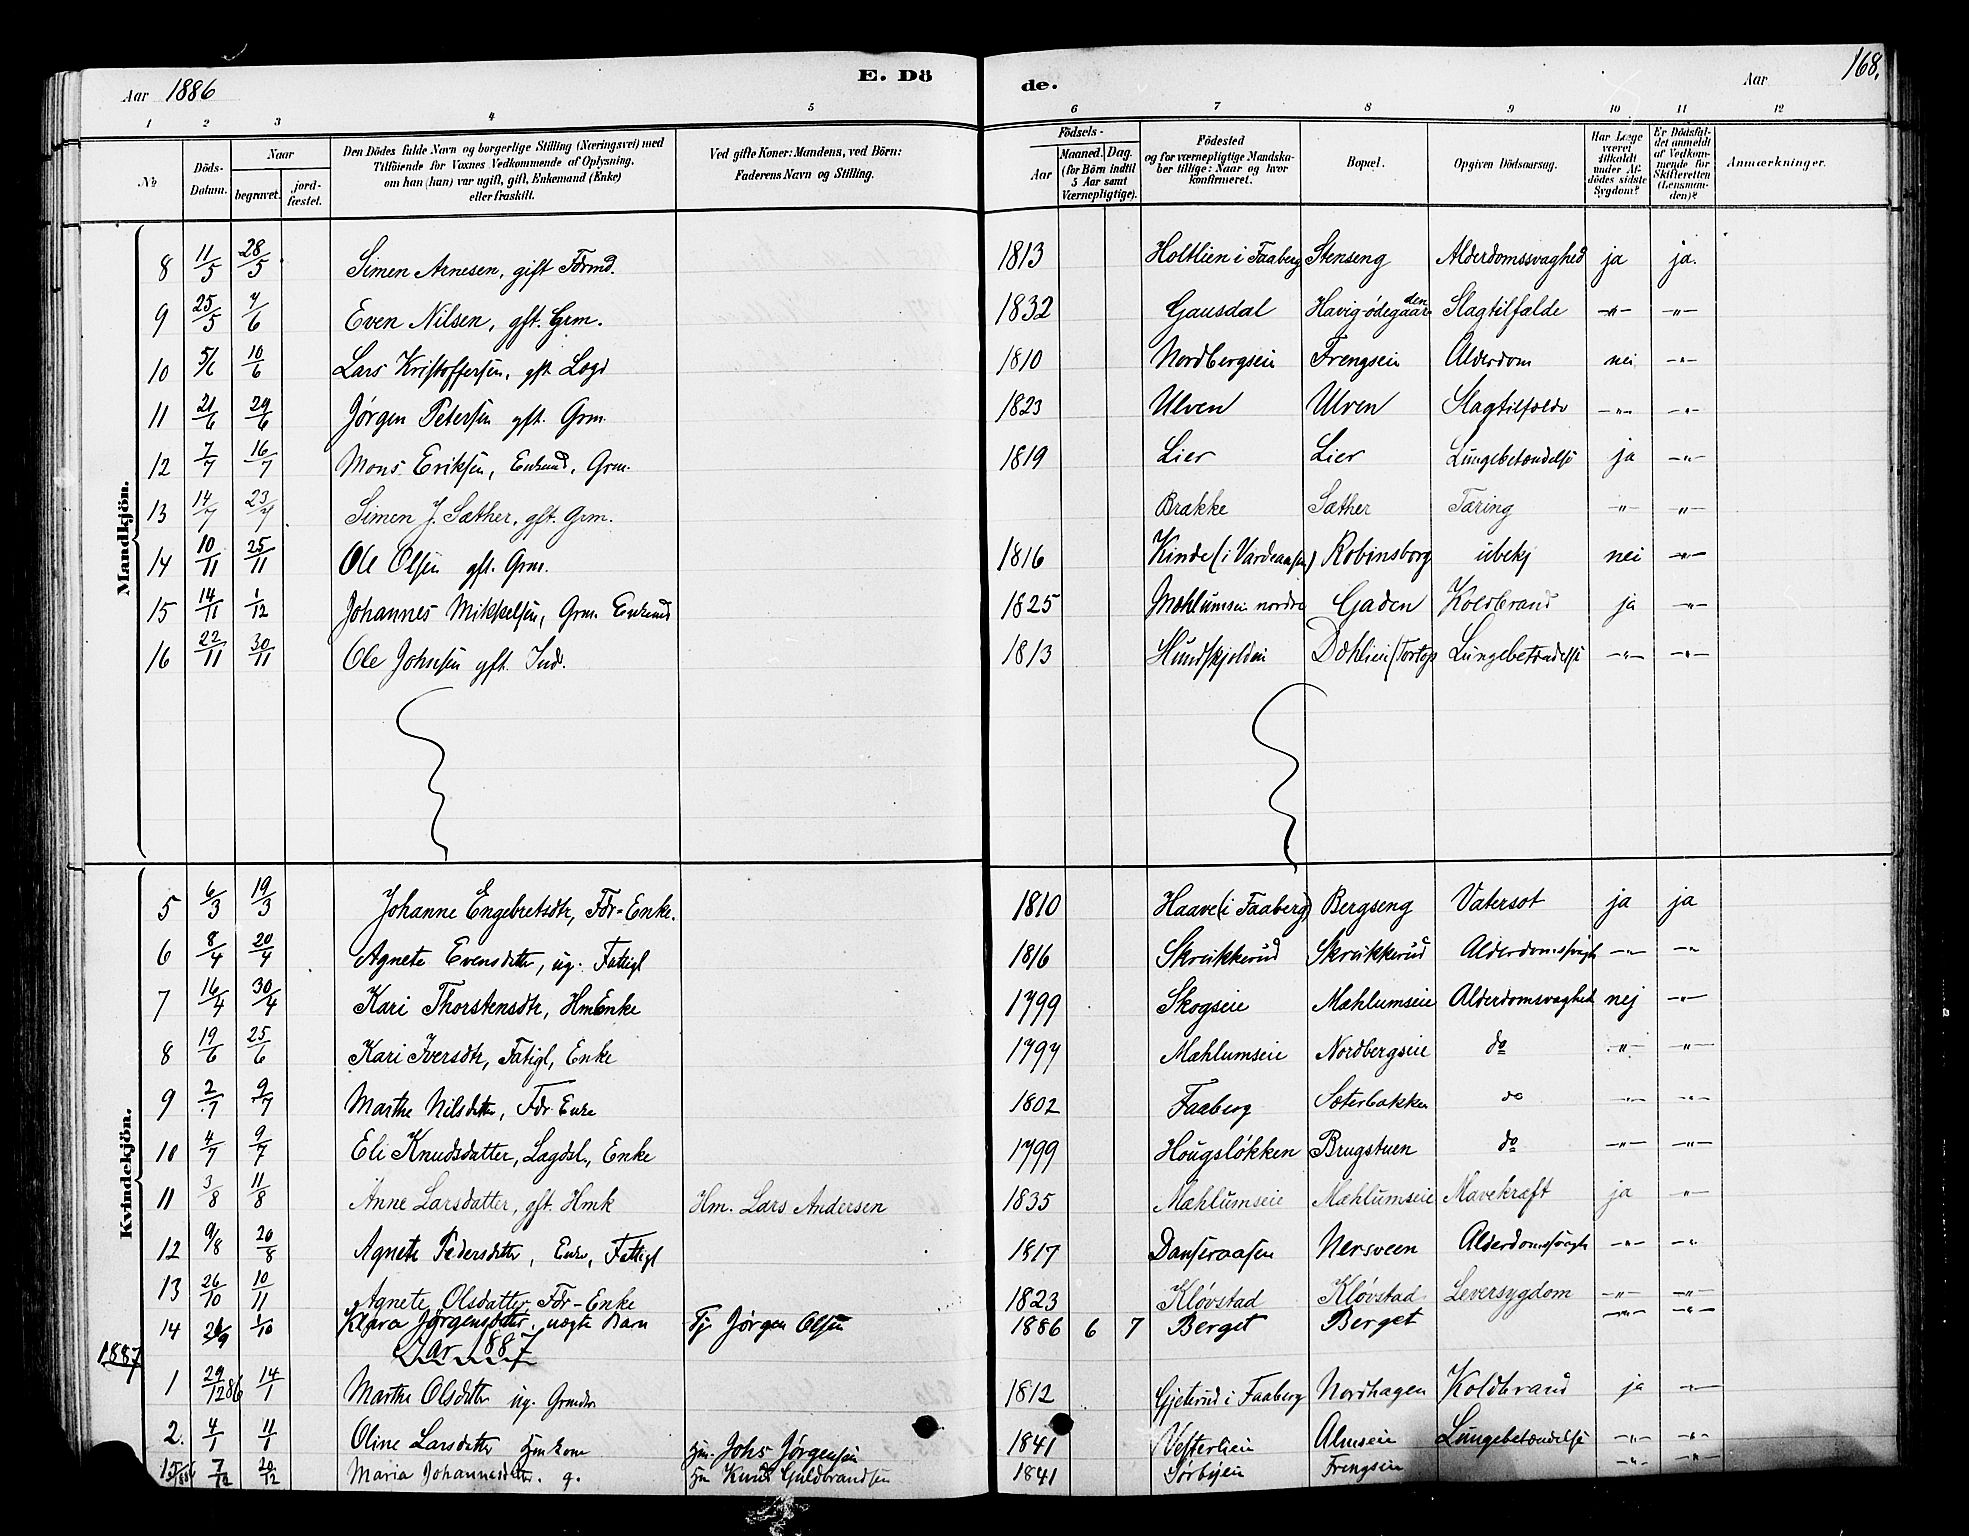 Aar 1886 E. Dö de. Aar 168.
1 2 3 4 5 6 7 8 9 10 11 12
№ Döds-Datum. Naar begravet. jord-fæstet. Den Dödes fulde Navn og borgerlige Stilling (Næringsvei) med Tilföiende for Voxnes Vedkommende af Oplysning, om han (hun) var ugift, gift, Enkemand (Enke) eller fraskilt. Ved gifte Koner: Mandens, ved Börn: Faderens Navn og Stilling. Födsels- Aar Maaned. Dag. (for Börn indtil 5 Aar samt Værnepligtige). Födested og for værnepligtige Mandska-ber tillige: Naar og hvor konfirmeret. Bopæl. Opgiven Dödsaarsag. Har Læge været tilkaldt under Af-dödes sidste Sygdom? Er Dödsfal-det anmeldt af Vedkom-mende for Skifteretten (Lensman-den)? Anmærkninger.
Mandkjön.
8 11/5 28/5 Simen Arnesen, gift Fdrmd. 1813 Holtlien i Faaberg Stenseng Alderdomssvaghed ja ja.
9 25/5 4/6 Even Nilsen, gft. Grm. 1832 Gausdal Havig-ødegaarden Slagtilfælde -"- -"-
10 5/6 10/6 Lars Kristoffersen, gft Logd 1810 Nordbergseie Frengseie Alderdom nei -"-
11 21/6 29/6 Jørgen Petersen gft. Grm. 1823 Ulven Ulven Slagtilfælde -"- -"-
12 7/7 16/7 Mons Eriksen, Enkemd, Grm. 1819 Lier Lier Lungebetændelse ja -"-
13 14/7 23/7 Simen J. Sæther, gft. Grm. Brække Sæther Tæring -"- -"-
14 10/11 25/11 Ole Olsen gft. Grm. 1816 Kinde (i Vardeaasen) Robinsborg ubekj nei -"-
15 14/11 1/12 Johannes Mikkelsen, Grm. Enkemd 1825 Mæhlumseie nordre Gaden Koldbrand ja -"-
16 22/11 30/11 Ole Johnsen gft. Ind. 1813 Hundskjolden Dæhlien (Tortop Lungebetændelse -"- -"-
Kvindekjön.
5 6/3 19/3 Johanne Engebretsdtr, Fdr-Enke. 1810 Haave (i Faaberg) Bergseng Vatersot ja ja
6 8/4 20/4 Agnete Evensdatter, ug. Fattigl 1816 Skreikkerud Skreikkerud Alderdomssvagh -"- -"-
7 16/4 30/4 Kari Thorstensdtr, Hm Enke 1799 Skogseie Mæhlumseie Alderdomsvaghed nej -"-
8 19/6 25/6 Kari Iversdtr, Fatigl, Enke 1797 Mæhlumseie Nordbergseie do -"- -"-
9 2/7 9/7 Marthe Nilsdatter, Fdr Enke 1802 Faaberg Sæterbakken do -"- -"-
10 4/7 9/7 Eli Knudsdatter, Lægdsl., Enke 1799 Hougsløkken Brugstuen do -"- -"-
11 3/8 11/8 Anne Larsdatter, gft. Hmk Hm. Lars Andersen 1835 Mæhlumseie Mæhlumseie Mavekræft ja -"-
12 9/8 20/8 Agnete Pedersdatter, Enke, Fattigl 1817 Danseraasen Nersveen Alderdomssvagh -"- -"-
13 26/10 10/11 Agnete Olsdatter Fdr-Enke 1823 Kløvstad Kløvstad Leversygdom -"- -"-
14 1/10 Klara Jørgensdatter, uægte Barn Tj. Jørgen Olsen 1886 6 7 Berget Berget -"- -"-
1887 Aar 1887
1 29/12 86 14/1 Marthe Olsdatter ug. 1812 Gjeterud i Faaberg Nordhagen Koldbrand ja -"-
2. 4/1 11/1 Oline Larsdatter Hmkone Hm. Johs Jørgensen 1841 Vesterlien Almseie Lungebetændelse -"- -"-
7/12 20/12 Maria Johannesdatter. g. Hm Knud Guldbrandsen 1841 Frengseie -"- -"-